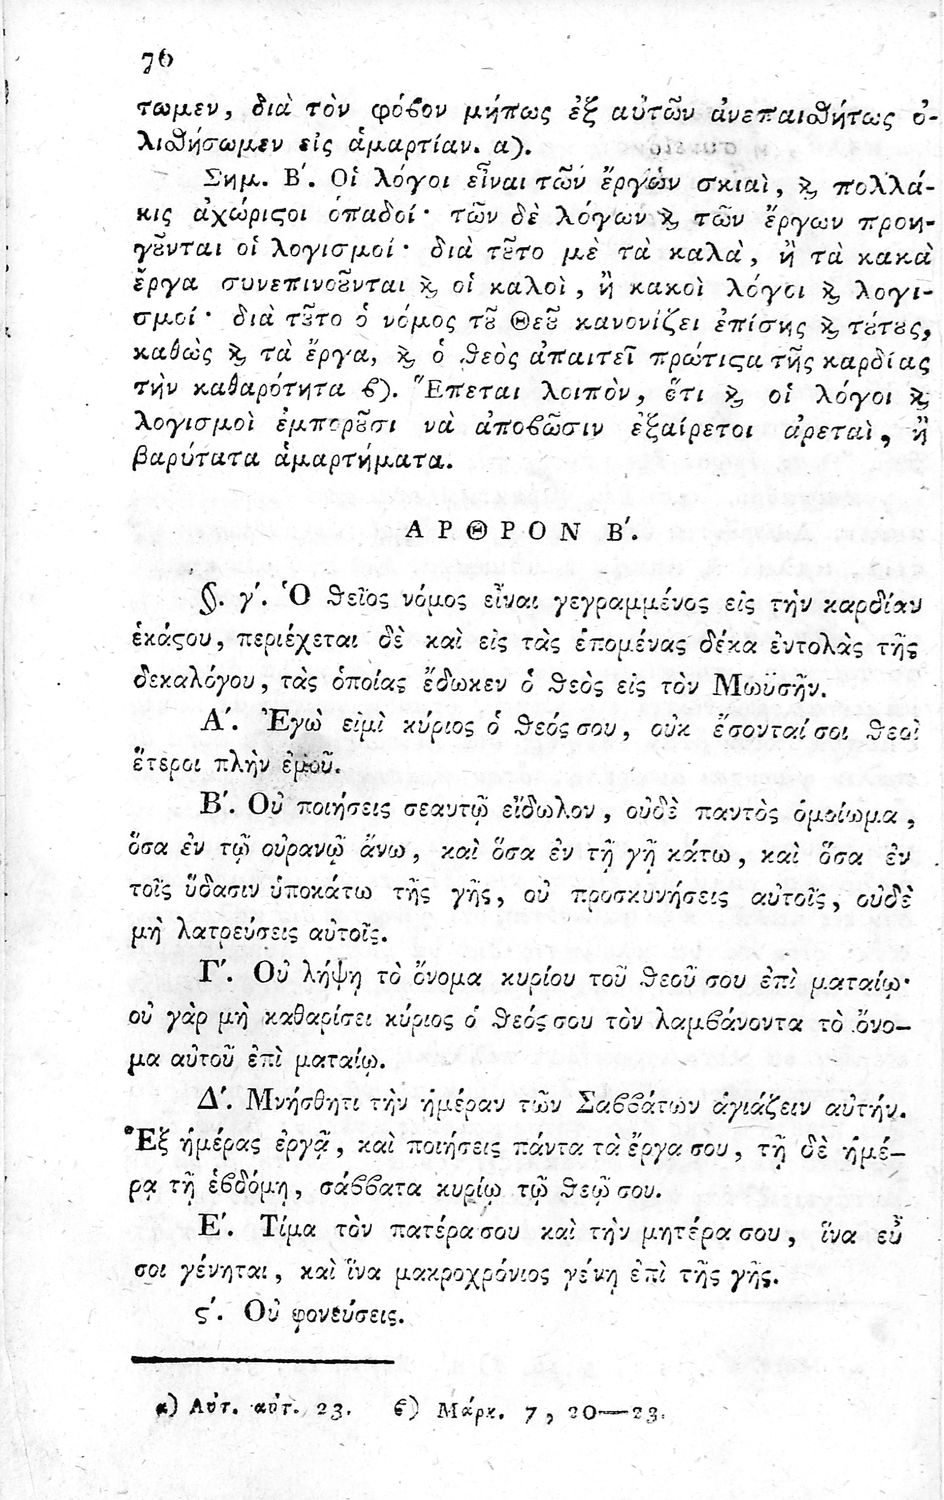 76
τωμεν, διὰ τὸν φόϐον μήπως ἐξ αὐτῶν ἀνεπαιϑήτως ὀ-
λιϑήσωμεν εἰς ἁμαρτίαν. α).
Σημ. Β΄. Οἱ λόγοι εἶναι τῶν ἔργων σκιαὶ, ϗ πολλά-
κις ἀχώριϛοι ὀπαδοί· τῶν δὲ λόγων ϗ τῶν ἔργων προη-
γȣ͂νται οἱ λογισμοί· διὰ τȣ͂το μὲ τὰ καλὰ, ἢ τὰ κακὰ
ἔργα συνεπινοȣ͂νται ϗ οἱ καλοὶ, ἢ κακοὶ λόγοι ϗ λογι-
σμοί· διὰ τȣ͂το ὁ νόμος τȣ͂ Θεȣ͂ κανονίζει ἐπίσης ϗ τȣ́τȣς,
καθὼς ϗ τὰ ἔργα, ϗ ὁ ϑεὸς ἀπαιτεῖ πρώτιϛα τῆς καρδίας
τὴν καθαρότητα ϐ). Ἕπεται λοιπὸν, ὅτι ϗ οἱ λόγοι ϗ
λογισμοὶ ἐμπορȣ͂σι νὰ ἀποϐῶσιν ἐξαίρετοι ἀρεταὶ, ἢ
βαρύτατα ἁμαρτήματα.
ΑΡΘΡΟΝ Β΄.
§. γ΄. Ὁ ϑεῖος νόμος εἶναι γεγραμμένος εἰς τὴν καρδίαν
ἑκάϛου, περιέχεται δὲ καὶ εἰς τὰς ἑπομένας δέκα ἐντολὰς τῆς
δεκαλόγου, τὰς ὁποίας ἔδωκεν ὁ ϑεὸς εἰς τὸν Μωϋσῆν.
Α΄. Ἐγὼ εἰμὶ κύριος ὁ ϑεός σου, οὐκ ἔσονταί σοι ϑεοὶ
ἕτεροι πλὴν ἐμοῦ.
Β΄. Οὐ ποιήσεις σεαυτῷ εἴδωλον, οὐδὲ παντὸς ὁμοίωμα,
ὅσα ἐν τῷ οὐρανῷ ἄνω, καὶ ὅσα ἐν τῇ γῇ κάτω, καὶ ὅσα ἐν
τοῖς ὕδασιν ὑποκάτω τῆς γῆς, οὐ προσκυνήσεις αὐτοῖς, οὐδὲ
μὴ λατρεύσεις αὐτοῖς.
Γ΄. Οὐ λήψῃ τὸ ὄνομα κυρίου τοῦ ϑεοῦ σου ἐπὶ ματαίῳ·
οὐ γὰρ μὴ καθαρίσει κύριος ὁ ϑεός σου τὸν λαμϐάνοντα τὸ ὄνο-
μα αὐτοῦ ἐπὶ ματαίῳ.
Δ΄. Μνήσθητι τὴν ἡμέραν τῶν Σαϐϐάτων ἁγιάζειν αὐτήν.
Ἓξ ἡμέρας ἐργᾷ, καὶ ποιήσεις πάντα τὰ ἔργα σου, τῇ δὲ ἡμέ-
ρᾳ τῇ ἑβδόμῃ, σάϐϐατα κυρίῳ τῷ ϑεῷ σου.
Ε΄. Τίμα τὸν πατέρα σου καὶ τὴν μητέρα σου, ἵνα εὖ
σοι γένηται, καὶ ἵνα μακροχρόνιος γένῃ ἐπὶ τῆς γῆς.
ϛ΄. Οὐ φονεύσεις.
α) Αὐτ. αὐτ. 23. ϐ) Μάρκ. 7, 20—23.